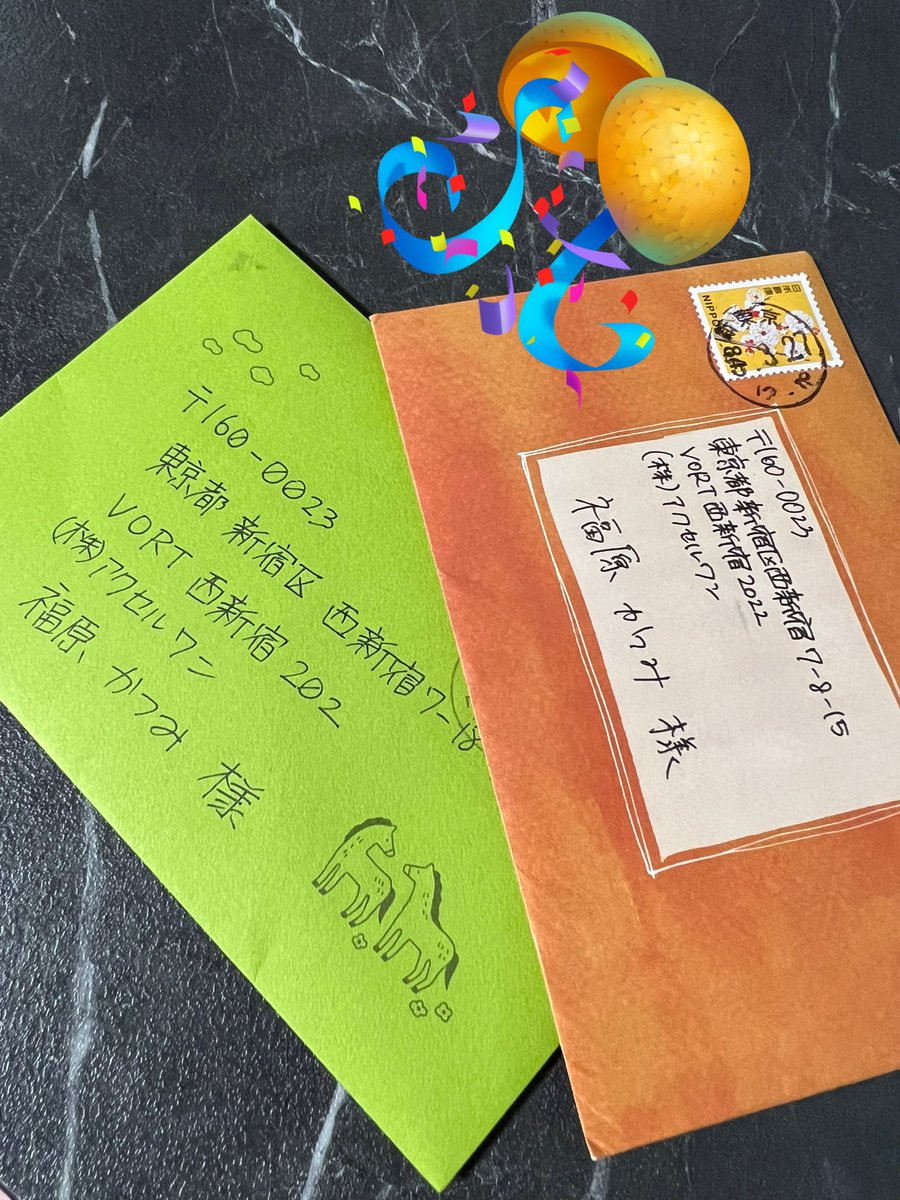 〒160-0023
東京都 新宿区 西新宿7-
VORT 西新宿 202
(株)アクセルワン
福原 かつみ 様
日本郵便
NIPPON
〒160-0023
東京都新宿区西新宿7-8-15
VORT西新宿2022
(株)アクセルワン
福原 かつみ 様